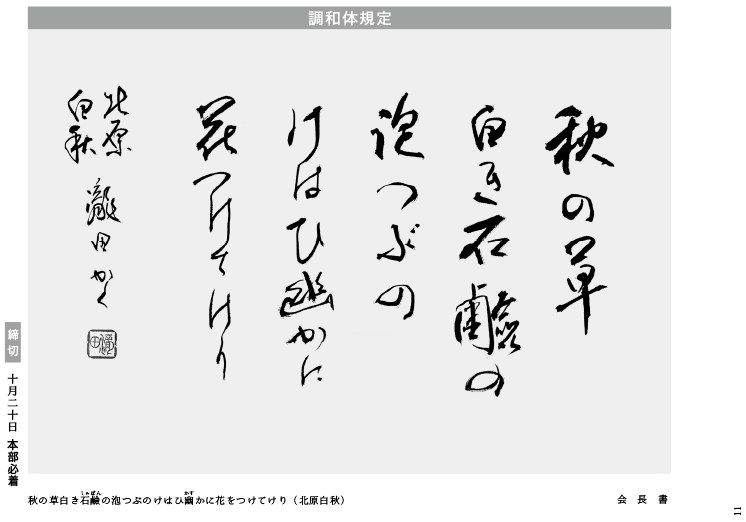 調和体規定
秋の草
白き石鹼の
泡つぶの
けはひ幽かに
花つけてけり
北原
白秋
瀧田かく
締切
十月二十日 本部必着
しゃぼん
かす
秋の草白き石鹼の泡つぶのけはひ幽かに花をつけてけり（北原白秋）
会長書